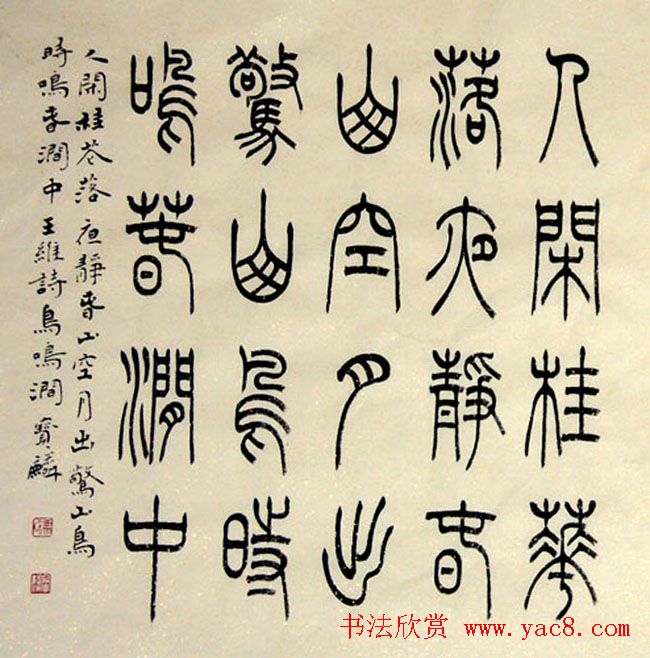 人閑桂華
落夜靜春
山空月出
驚山鳥時
鳴春澗中
人閑桂花落夜靜春山空月出驚山鳥
時鳴春澗中王維詩鳥鳴澗寶麟
书法欣赏 www.yac8.com